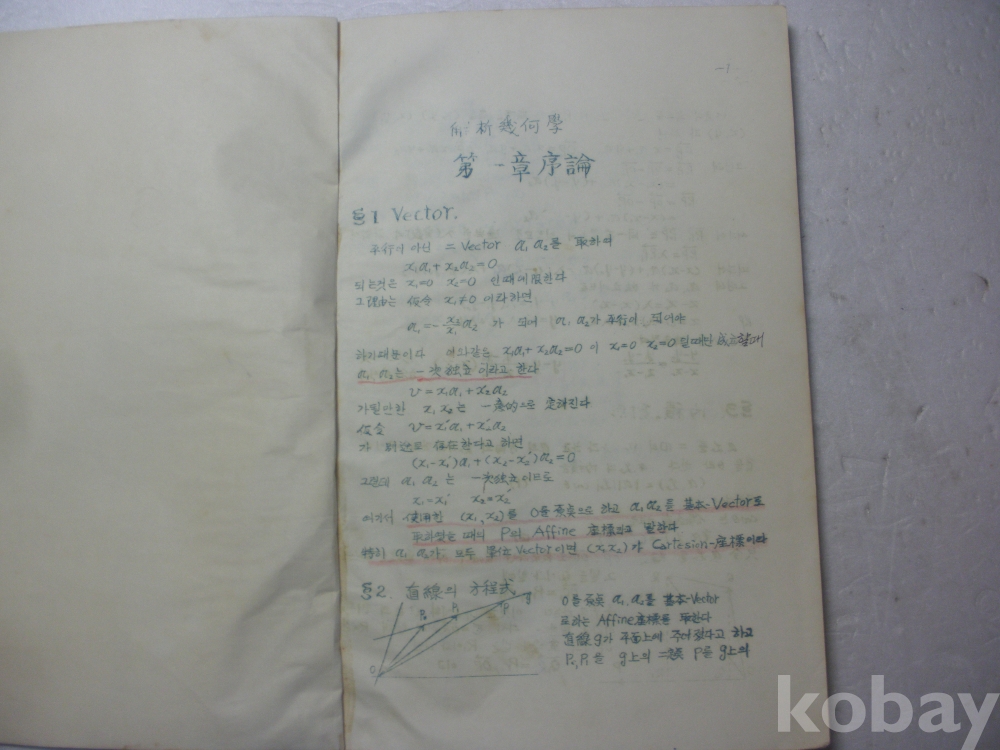 -1-
解析幾何學
第一章序論
§1 Vector.
平行이 아닌 二 Vector a₁ a₂를 取하여
x₁a₁+x₂a₂=0
되는것은 x₁=0 x₂=0 인때에限한다
그理由는 仮令 x₁≠0 이라하면
a₁=-x₂/x₁a₂ 가 되여 a₁ a₂가 平行이 되어야
하기때문이다 x₁a₁+x₂a₂=0 이 x₁=0 x₂=0 일때만 成立할때
a₁ a₂는 一次独立 이라고 한다
v=x₁a₁+x₂a₂
x₁ x₂는 一意的으로 定해진다
仮令 v=x₁'a₁+x₂'a₂
가 存在한다고 하면
(x₁-x₁')a₁+(x₂-x₂')a₂=0
그런데 a₁ a₂는 一次独立이므로
x₁=x₁' x₂=x₂'
여기서 使用한 (x₁, x₂)를 O를 原点으로 하고 a₁ a₂를 基本-Vector로
取하였을 때의 P의 Affine 座標라고 말한다
特히 a₁ a₂가 모두 單位 Vector이면 (x₁ x₂)가 Cartesian-座標이다
§2. 直線의 方程式
P₀ P₁ P g
O
O를 原点 a₁ a₂를 基本-Vector
로하는 Affine座標를 取한다
直線 g가 平面上에 주어졌다고 하고
P₀, P₁를 g上의 二点 P를 g上의
kobay